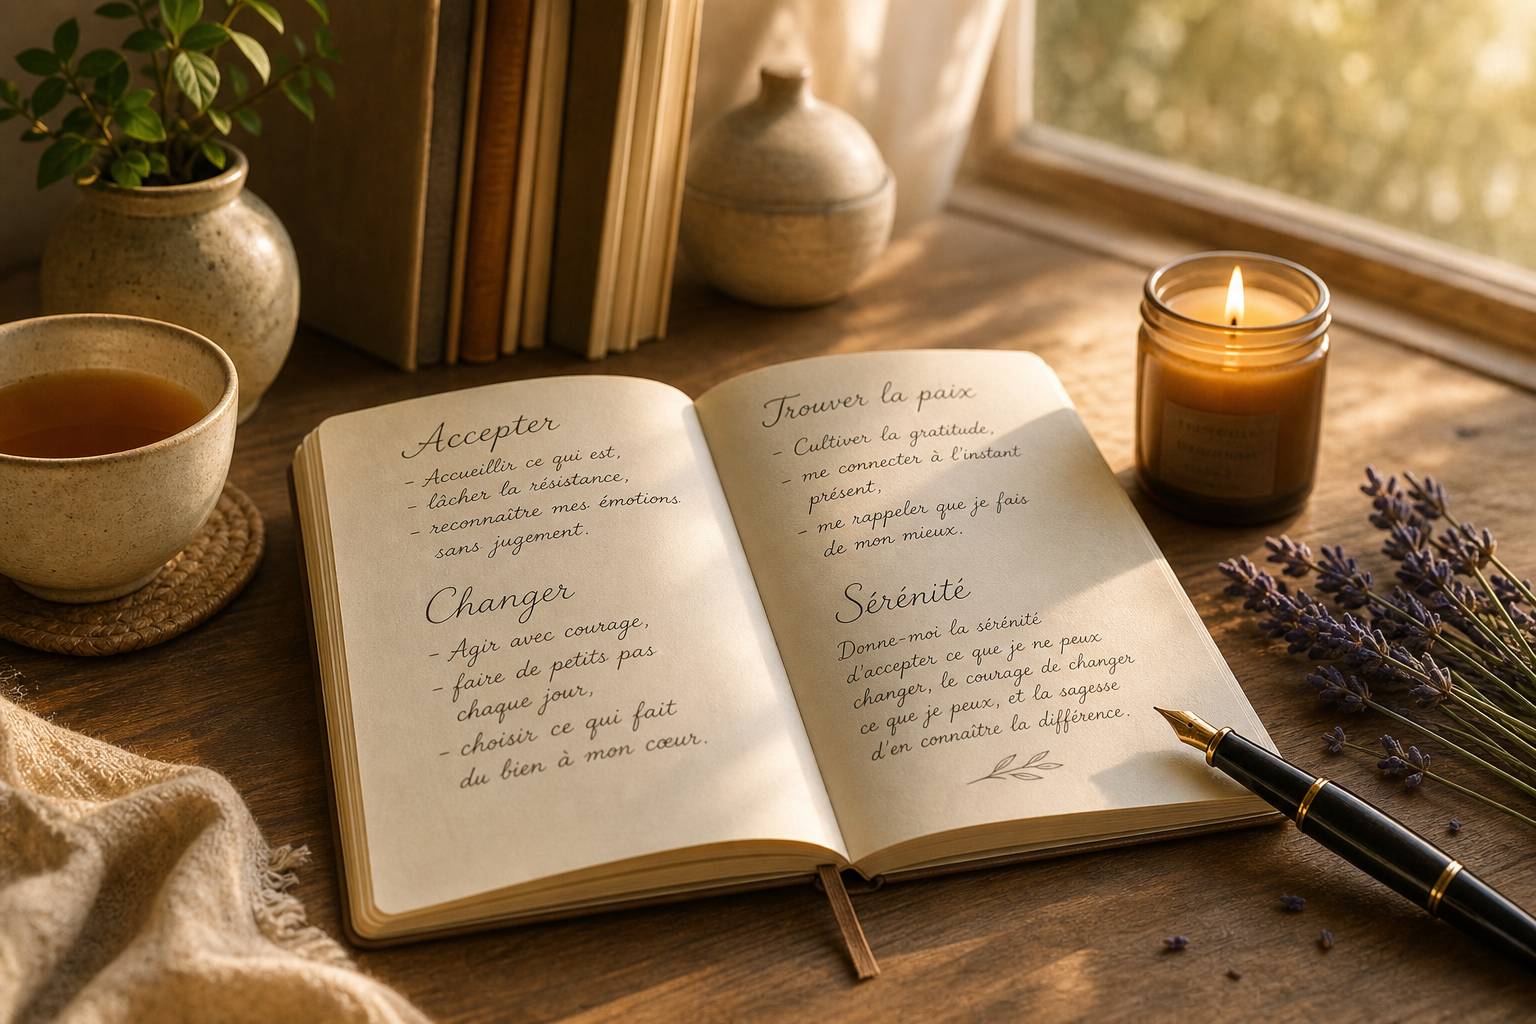 Accepter
- Accueillir ce qui est,
- lâcher la résistance,
- reconnaître mes émotions
sans jugement.
Changer
- Agir avec courage,
- faire de petits pas
chaque jour,
- choisir ce qui fait
du bien à mon cœur.
Trouver la paix
- Cultiver la gratitude,
- me connecter à l'instant
présent,
- me rappeler que je fais
de mon mieux.
Sérénité
Donne-moi la sérénité
d'accepter ce que je ne peux
changer, le courage de changer
ce que je peux, et la sagesse
d'en connaître la différence.